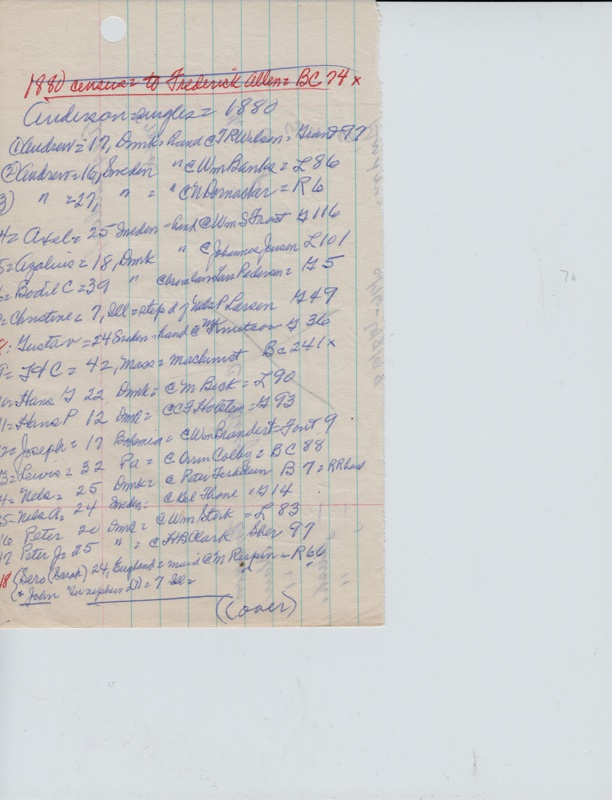 1880 census = to Frederick Allen = BC 74 x
Anderson = singles = 1880
① Andrew = 17, Dmk = hand C T R Wilson = Grand 97
② Andrew = 16, Sweden " C Wm Banks = L 86
3) " = 27, " = " C N Dornacker = R 6
4 = Axel = 25 Sweden - hand C Wm S Frost G 116
5 = Azalius = 18, Dmk " C Johannes Jensen L 101
6 = Bodil C = 39 " C Lars Pedersen = G 5
7 = Christine = 7, Ill = step d of Nels P Larsen G 49
8 = Gustav = 24 Sweden = hand C M Knutson G 36
9 = J H C = 42, Mass = machinist BC 241 x
10 = Hans J 22 Dmk = C M Beck = L 90
11 = Hans P 12 Dmk = C C F Holsten = G 93
12 = Joseph = 17 Bohemia = C Wm Brandert = Font 9
13 = Lewis = 32 Pa = C Orrin Colby = BC 88
14 = Nels = 25 Dmk = C Peter B 7 = RR hand
15 = Nels A = 24 Sweden = C Thone = G 14
16 Peter 20 Dmk = C Wm Stork = L 83
17 Peter J = 25 " = C H B Clark Sher 97
18 { Sero (Sarah) 24, England = maid C M Raspin = R 66
& John " = 7 Ill =
(over)